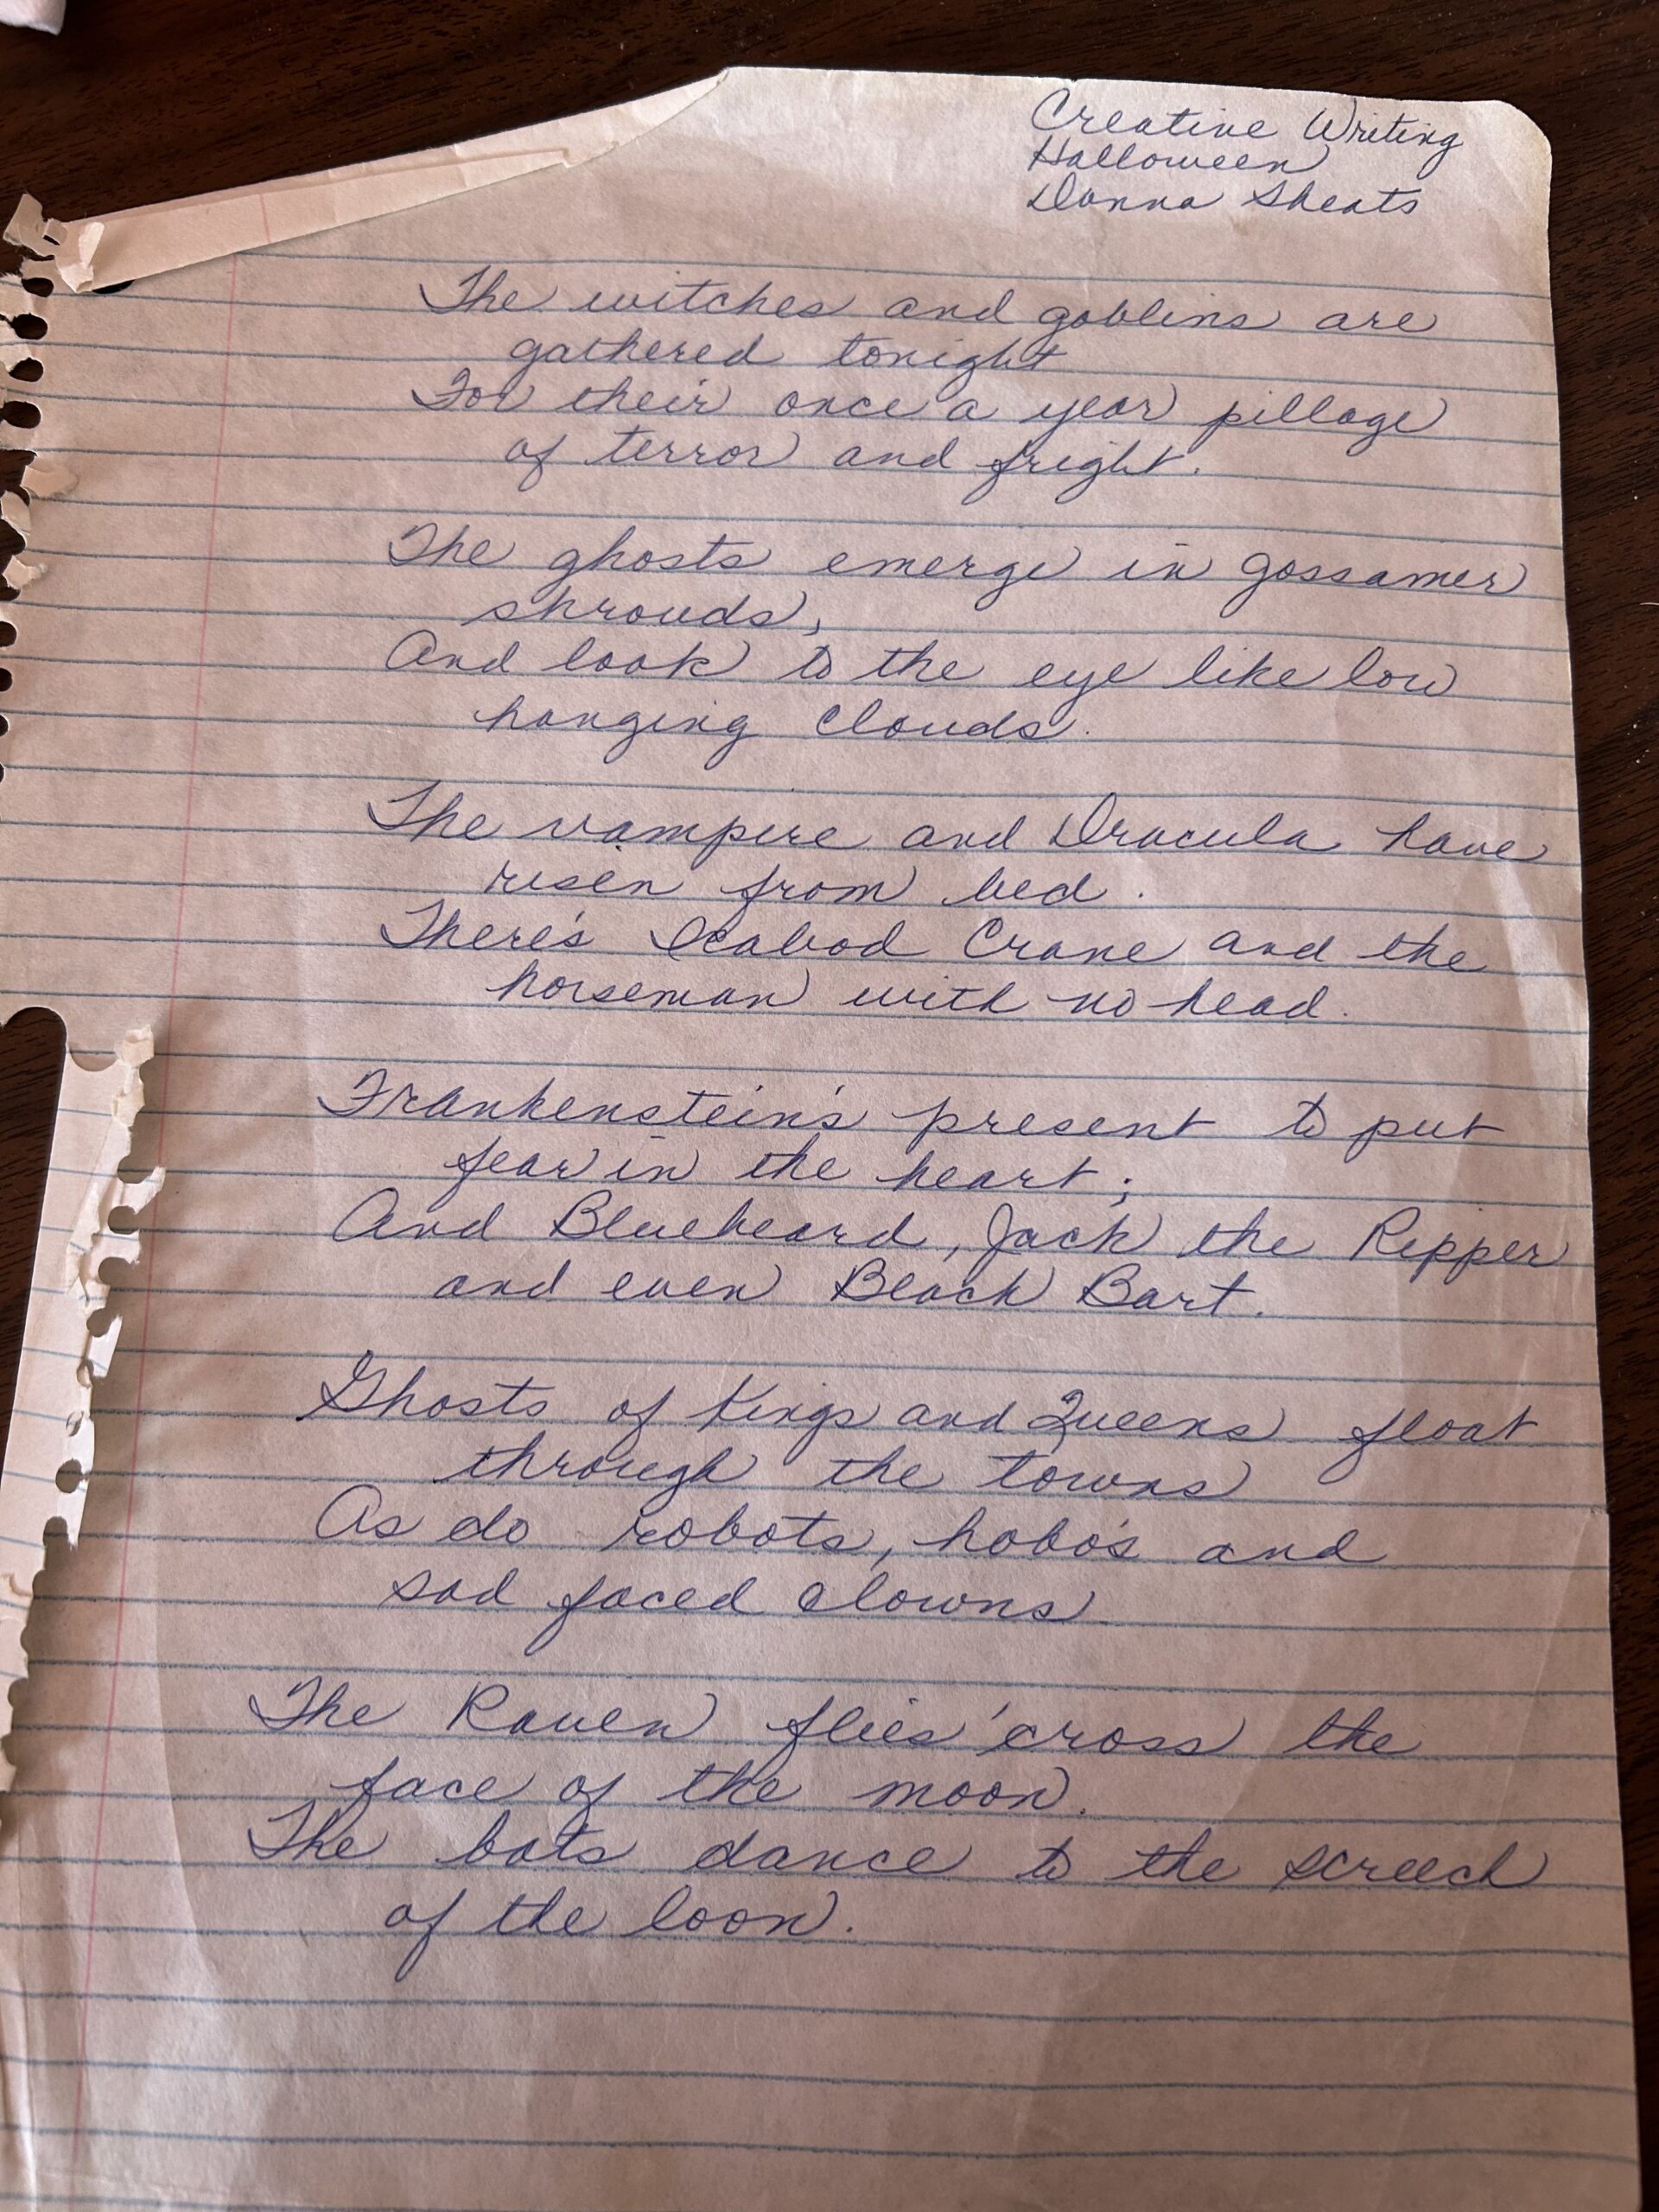 Creative Writing
Halloween
Donna Sheats
The witches and goblins are
gathered tonight
For their once a year pillage
of terror and fright.
The ghosts emerge in gossamer
shrouds,
And look to the eye like low
hanging clouds.
The vampire and Dracula have
risen from bed.
There's Icabod Crane and the
horseman with no head.
Frankenstein's present to put
fear in the heart;
And Bluebeard, Jack the Ripper
and even Black Bart.
Ghosts of Kings and Queens float
through the towns
As do robots, hobo's and
sad faced clowns
The Raven flies 'cross the
face of the moon.
The bats dance to the screech
of the loon.